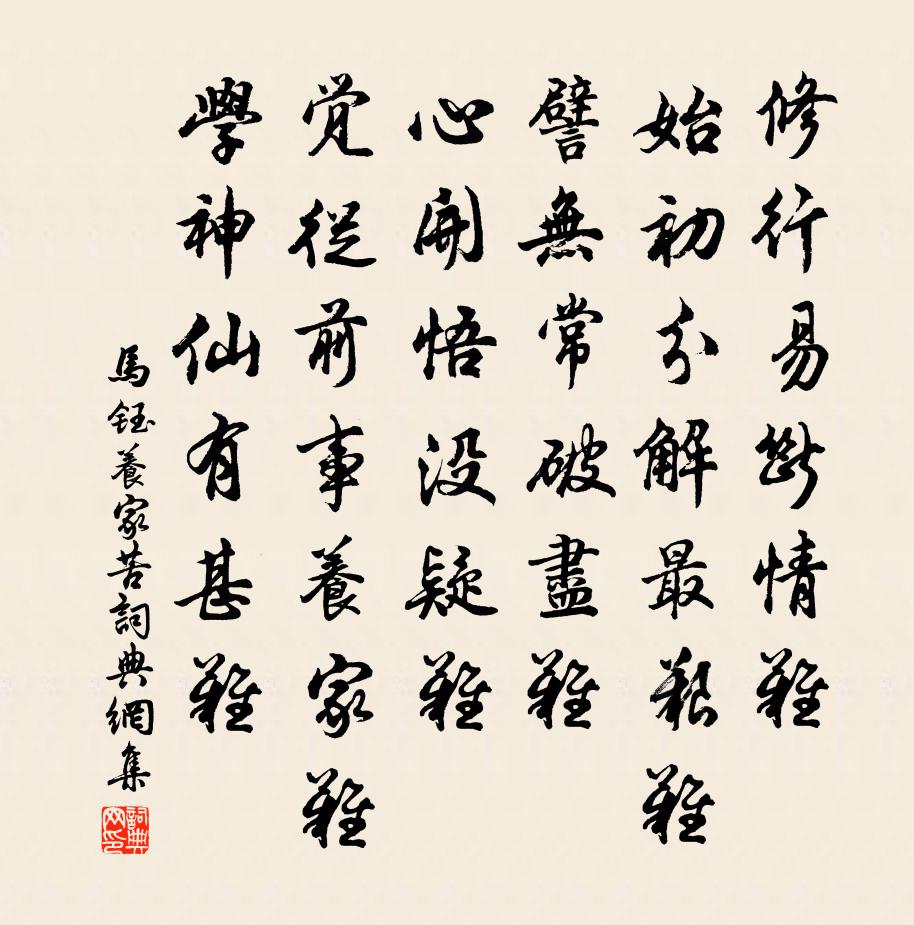 修行易斷情難
始初分解最艱難
譬無常破盡難
心開悟没疑難
覺從前事養家難
學神仙有甚難
馬鈺養家苦詞典網集
詞典网印